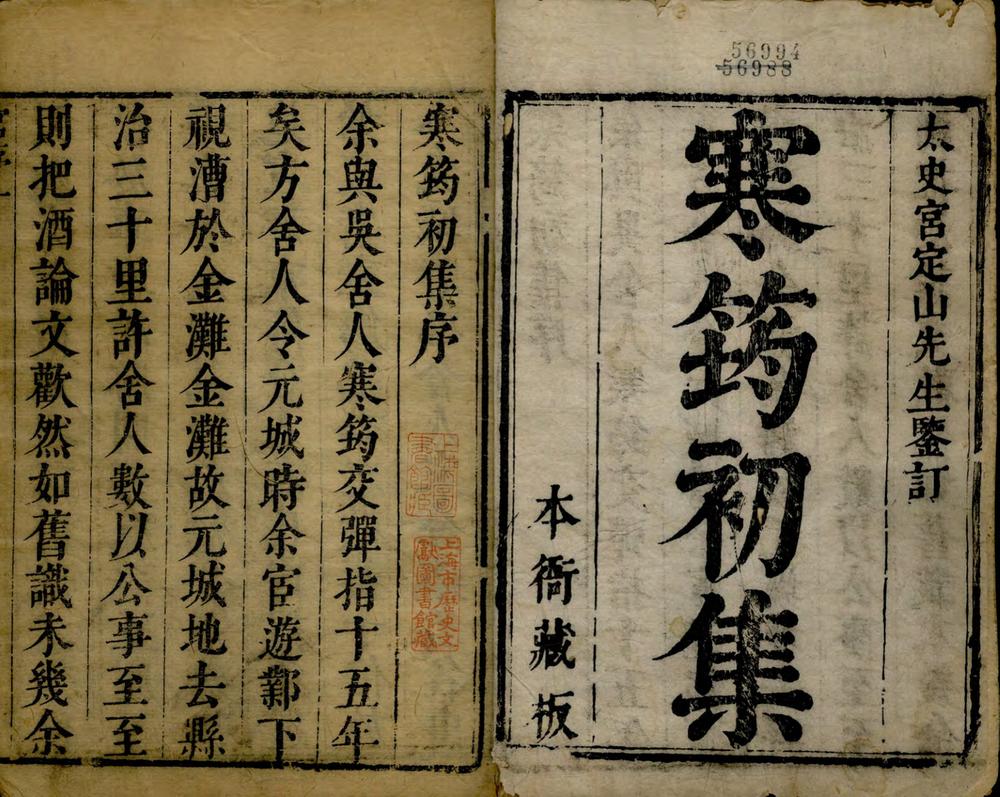 56994
56988
太史宮定山先生鑒訂
寒筠初集
本衙藏板
寒筠初集序
余與吳舍人寒筠交彈指十五年
矣方舍人令元城時余宦遊鄴下
視漕於金灘金灘故元城地去縣
治三十里許舍人數以公事至至
則把酒論文歡然如舊識未幾余
上海圖書館藏
上海市歷史文獻圖書館藏